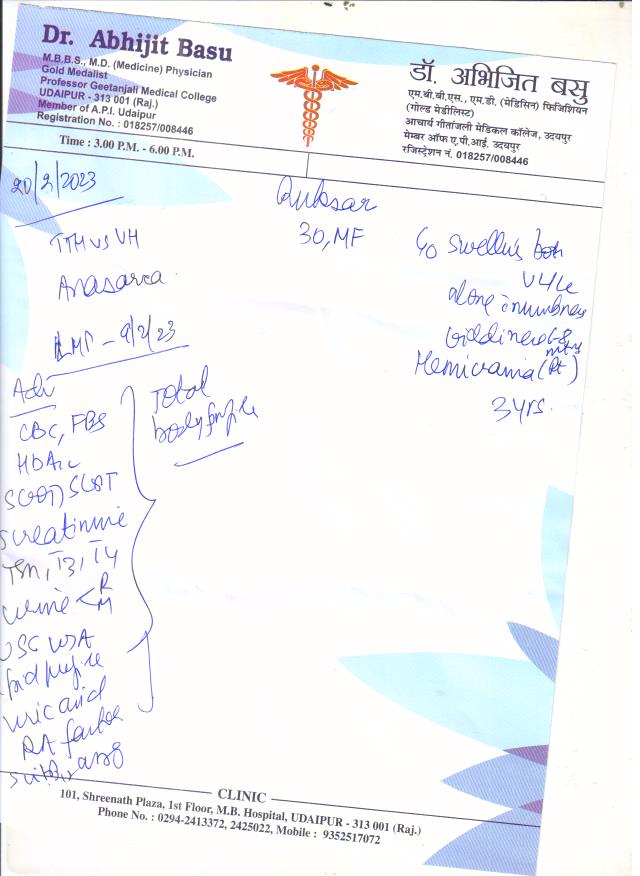 Dr. Abhijit Basu
M.B.B.S., M.D. (Medicine) Physician
Gold Medalist
Professor Geetanjali Medical College
UDAIPUR - 313 001 (Raj.)
Member of A.P.I. Udaipur
Registration No. : 018257/008446
Time : 3.00 P.M. - 6.00 P.M.
डॉ. अभिजित बसु
एम.बी.बी.एस., एम.डी. (मेडिसिन) फिजिशियन
(गोल्ड मेडीलिस्ट)
आचार्य गीतांजली मेडिकल कॉलेज, उदयपुर
मेम्बर ऑफ ए.पी.आई. उदयपुर
रजिस्ट्रेशन नं. 018257/008446
20/2/2023
Ruksar
30, MF
TTH vs VH
Anasarca
LMP - 9/2/23
C/o swelling
U4L
along numbness
Giddiness
Hemicrania (Rt)
3 yrs.
Adv
CBC, FBS
HbA1c
SGOT, SGPT
S creatinine
TSH, T3, T4
Urine < R
M
USG W/A
Lipid profile
Uric acid
RA factor
Total
body profile
CLINIC
101, Shreenath Plaza, 1st Floor, M.B. Hospital, UDAIPUR - 313 001 (Raj.)
Phone No. : 0294-2413372, 2425022, Mobile : 9352517072